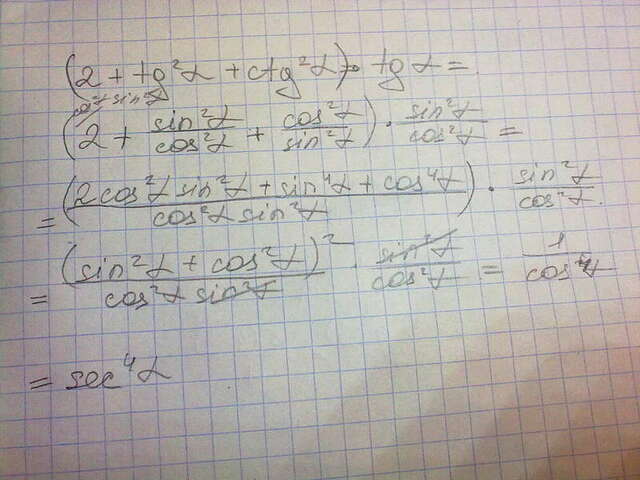 (2 + tg²α + ctg²α) · tgα =
cos²α sin²α
(2 + sin²α/cos²α + cos²α/sin²α) · sin²α/cos²α =
= (2cos²α sin²α + sin⁴α + cos⁴α / cos²α sin²α) · sin²α/cos²α.
= (sin²α + cos²α)² / cos²α sin²α · sin²α/cos²α = 1/cos⁴α
= sec⁴α